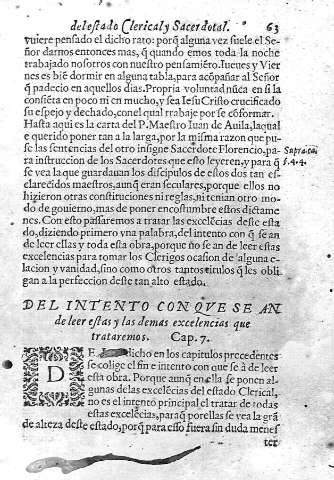 del estado Clerical, y Sacerdotal. 63
uuiere pensado el dicho rato: porq̃ alguna vez suele el Se-
ñor darnos entonces mas, q̃ quando emos toda la noche
trabajado nosotros con nuestro pensamiẽto. Iueues y Vier
nes es biẽ dormir en alguna tabla, para acõpañar al Señor
q̃ padecio en aquellos dias. Propria voluntad nũca en si la
consiẽta en poco ni en mucho, y sea Iesu Cristo crucificado
su espejo y dechado, con el qual trabaje por se cõformar.
Hasta aqui es la carta del P. Maestro Iuan de Auila, la qual
e querido poner tan a la larga, por la misma razon que pu-
se las sentencias del otro insigne Sacerdote Florencio, pa-
ra instruccion de los Sacerdotes que esto leyeren, y para q̃
se vea la que guardauan los discipulos de estos dos tan es-
clarecidos maestros, aunq̃ eran seculares, porque ellos no
hizieron otras constituciones ni reglas, ni tenian otro mo-
do de gouierno, mas de poner en costumbre estos dictame-
nes. Con esto passaremos a tratar las excelẽcias deste esta-
do, diziendo primero vna palabra, del intento con q̃ se an
de leer ellas y toda esta obra, porque no se an de leer estas
excelencias para tomar los Clerigos ocasion de alguna e-
lacion y vanidad, sino como otros tantos titulos q̃ les obli-
gan a la perfeccion deste tan alto estado.
Supra cai
§.4.4.
DEL INTENTO CON QVE SE AN
de leer estas y las demas excelencias que
trataremos. Cap. 7.
DE dicho en los capitulos precedentes
se colige el fin e intento con que se à de leer
esta obra. Porque aunq̃ en ella se ponen al-
gunas de las excelẽcias del estado Clerical,
no es el intento principal el tratar de todas
estas excelẽcias, paraq̃ por ellas se vea la grã
de alteza deste estado, porq̃ para esso fuera sin duda menes
ter